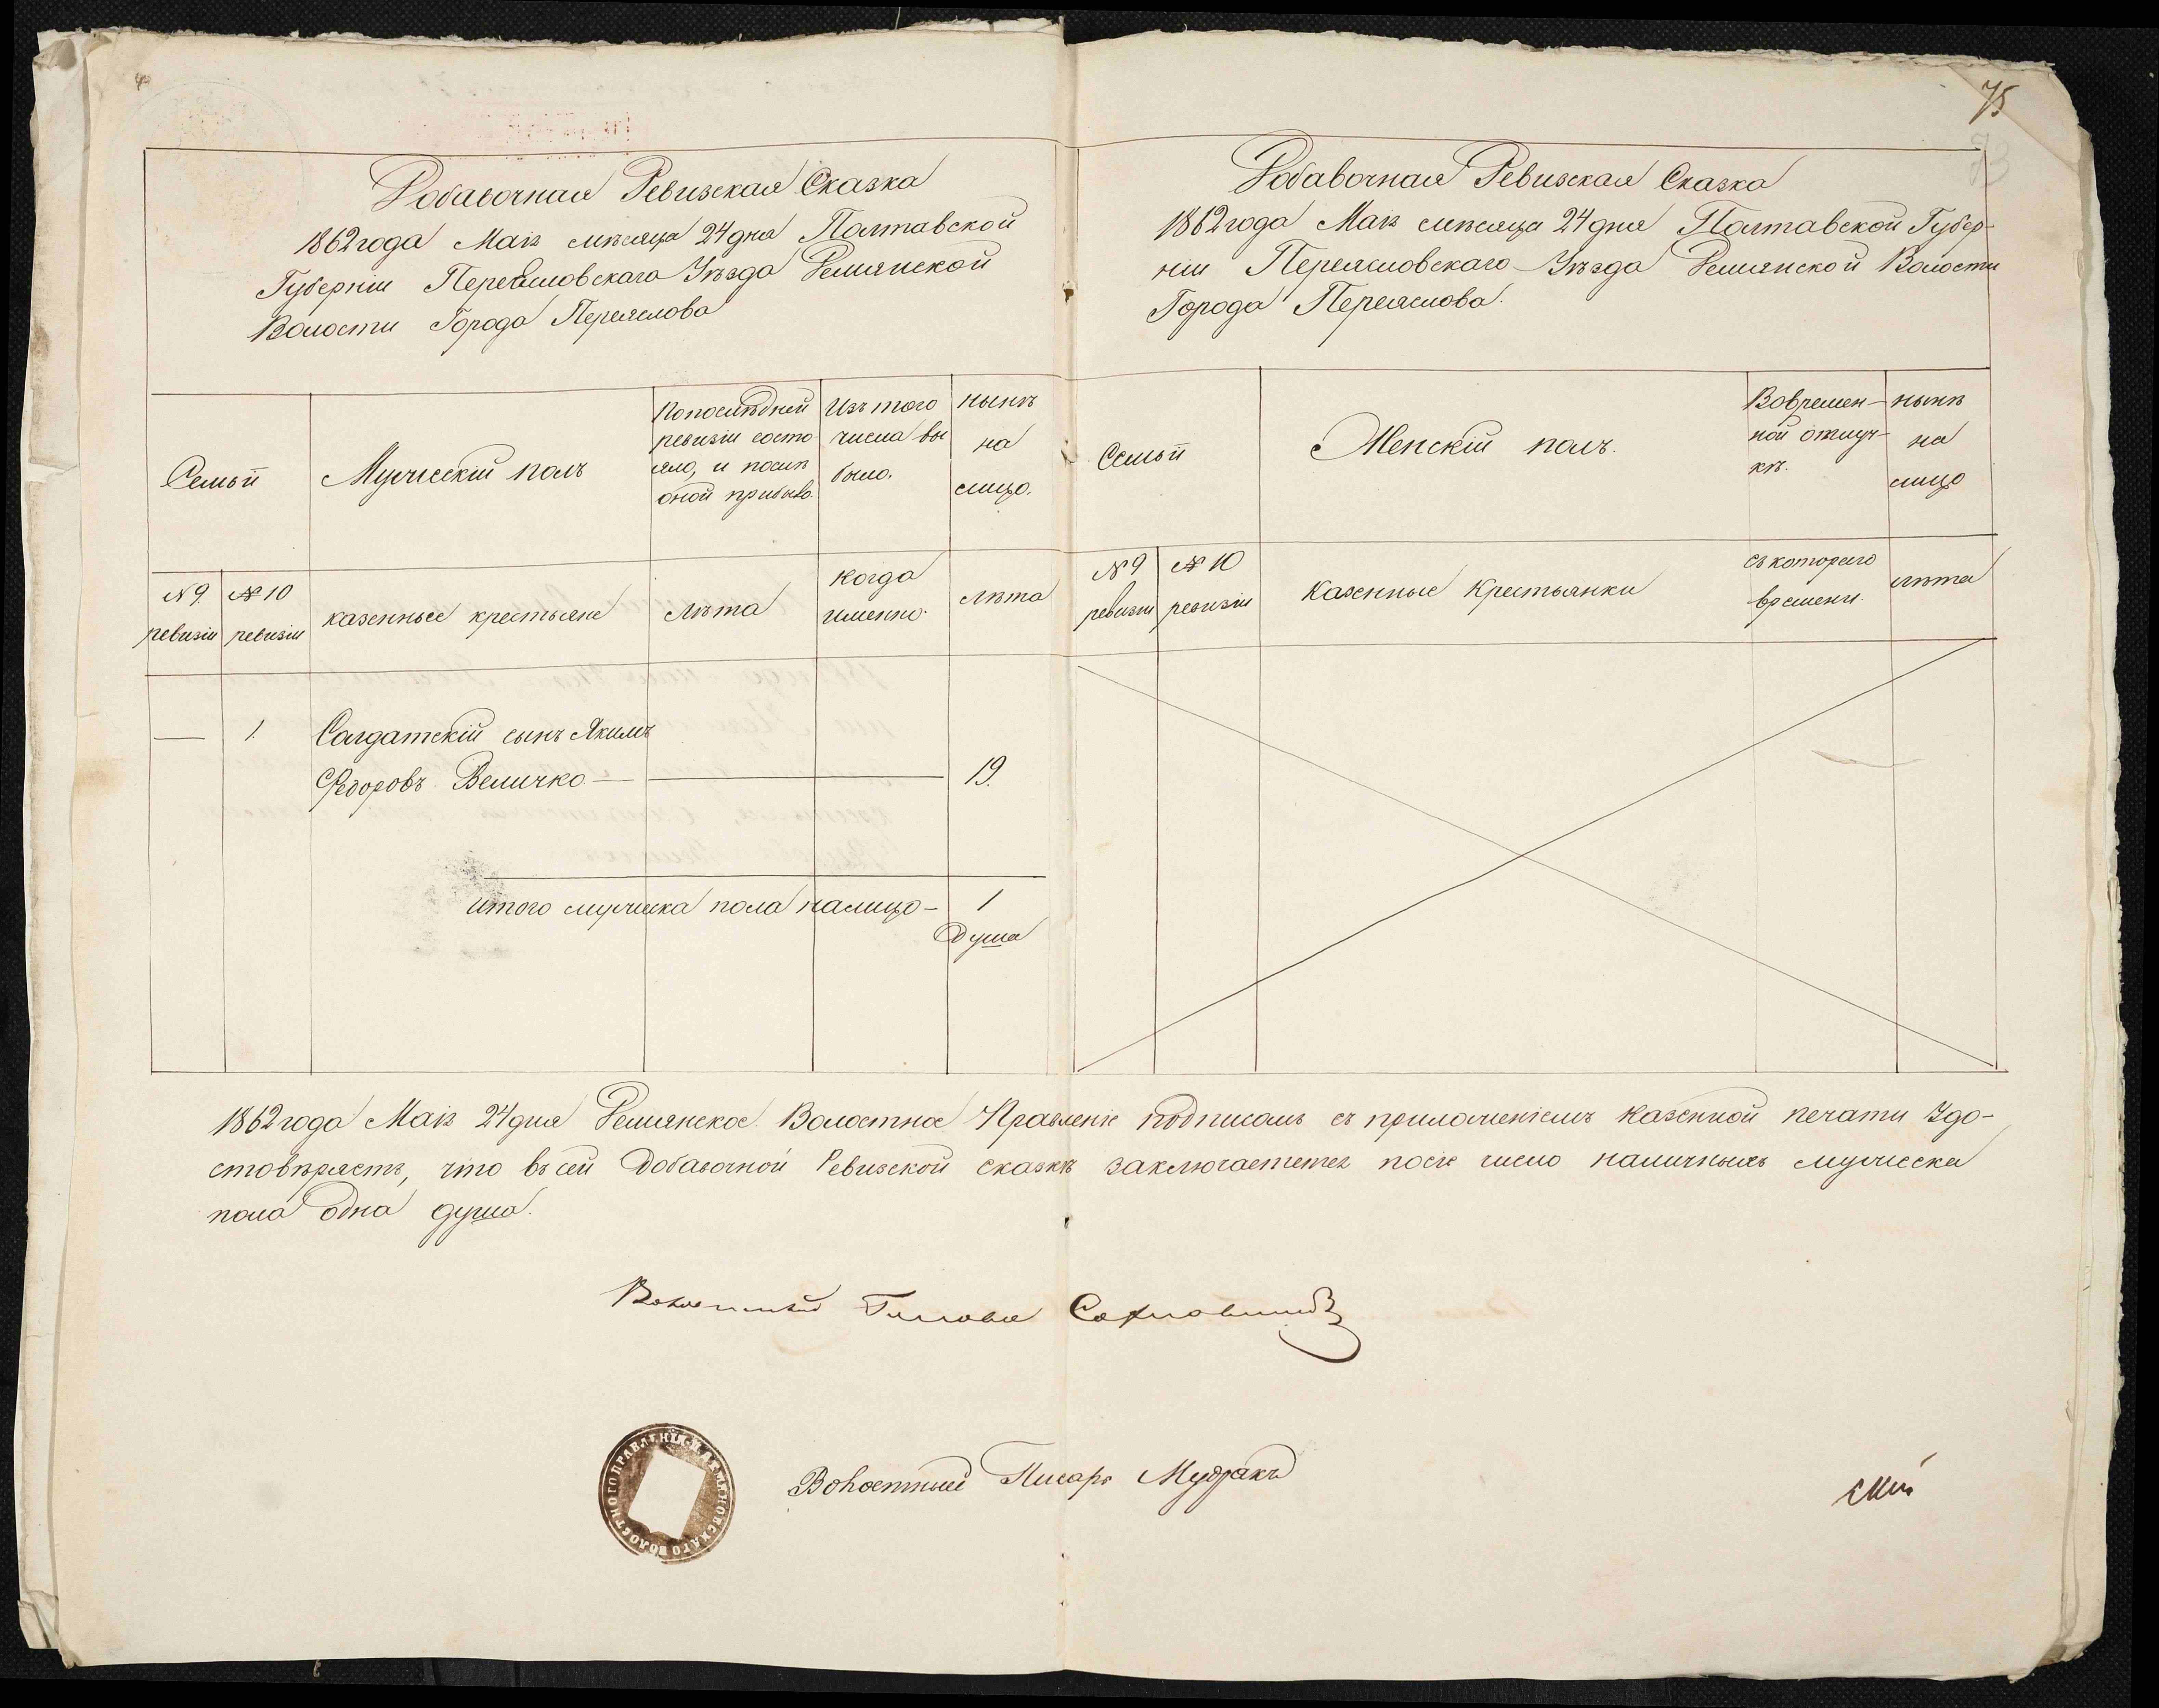 75
Добавочная Ревизская Сказка
1862 года Маія мѣсяца 24 дня Полтавской
Губерніи Переяславскаго Уѣзда Демянской
Волости Города Переяслова
Семьи
Мужескій полъ
Попослѣдней
ревизіи состо
яло, и послѣ
оной прибыло.
Изъ того
числа вы
было.
нынѣ
на
лицо.
№ 9.
ревизіи
№ 10
ревизіи
казенные крестьяне
лѣта
когда
именно.
лѣта
1.
Солдатскій сынъ Якимъ
Федоровъ Величко
19.
итого мужеска пола налицо - 1
душа
Добавочная Ревизская Сказка
1862 года Маія мѣсяца 24 дня Полтавской Губер-
ніи Переясловскаго Уѣзда Демянской Волости
Города Переяслова.
Семьи
Женскій полъ.
Вовремен-
ной отлуч-
кѣ.
нынѣ
на
лицо
№ 9
ревизіи
№ 10
ревизіи
казенные крестьянки
съ котораго
времени.
лѣта
1862 года Маія 24 дня Демянское Волостное Правленіе подписомъ съ приложеніемъ казенной печати Удо-
стовѣряетъ, что въ сей Добавочной Ревизской сказкѣ заключается число наличныхъ мужеска
пола одна душа.
Волостный Голова
Волостный Писарь Мудракъ